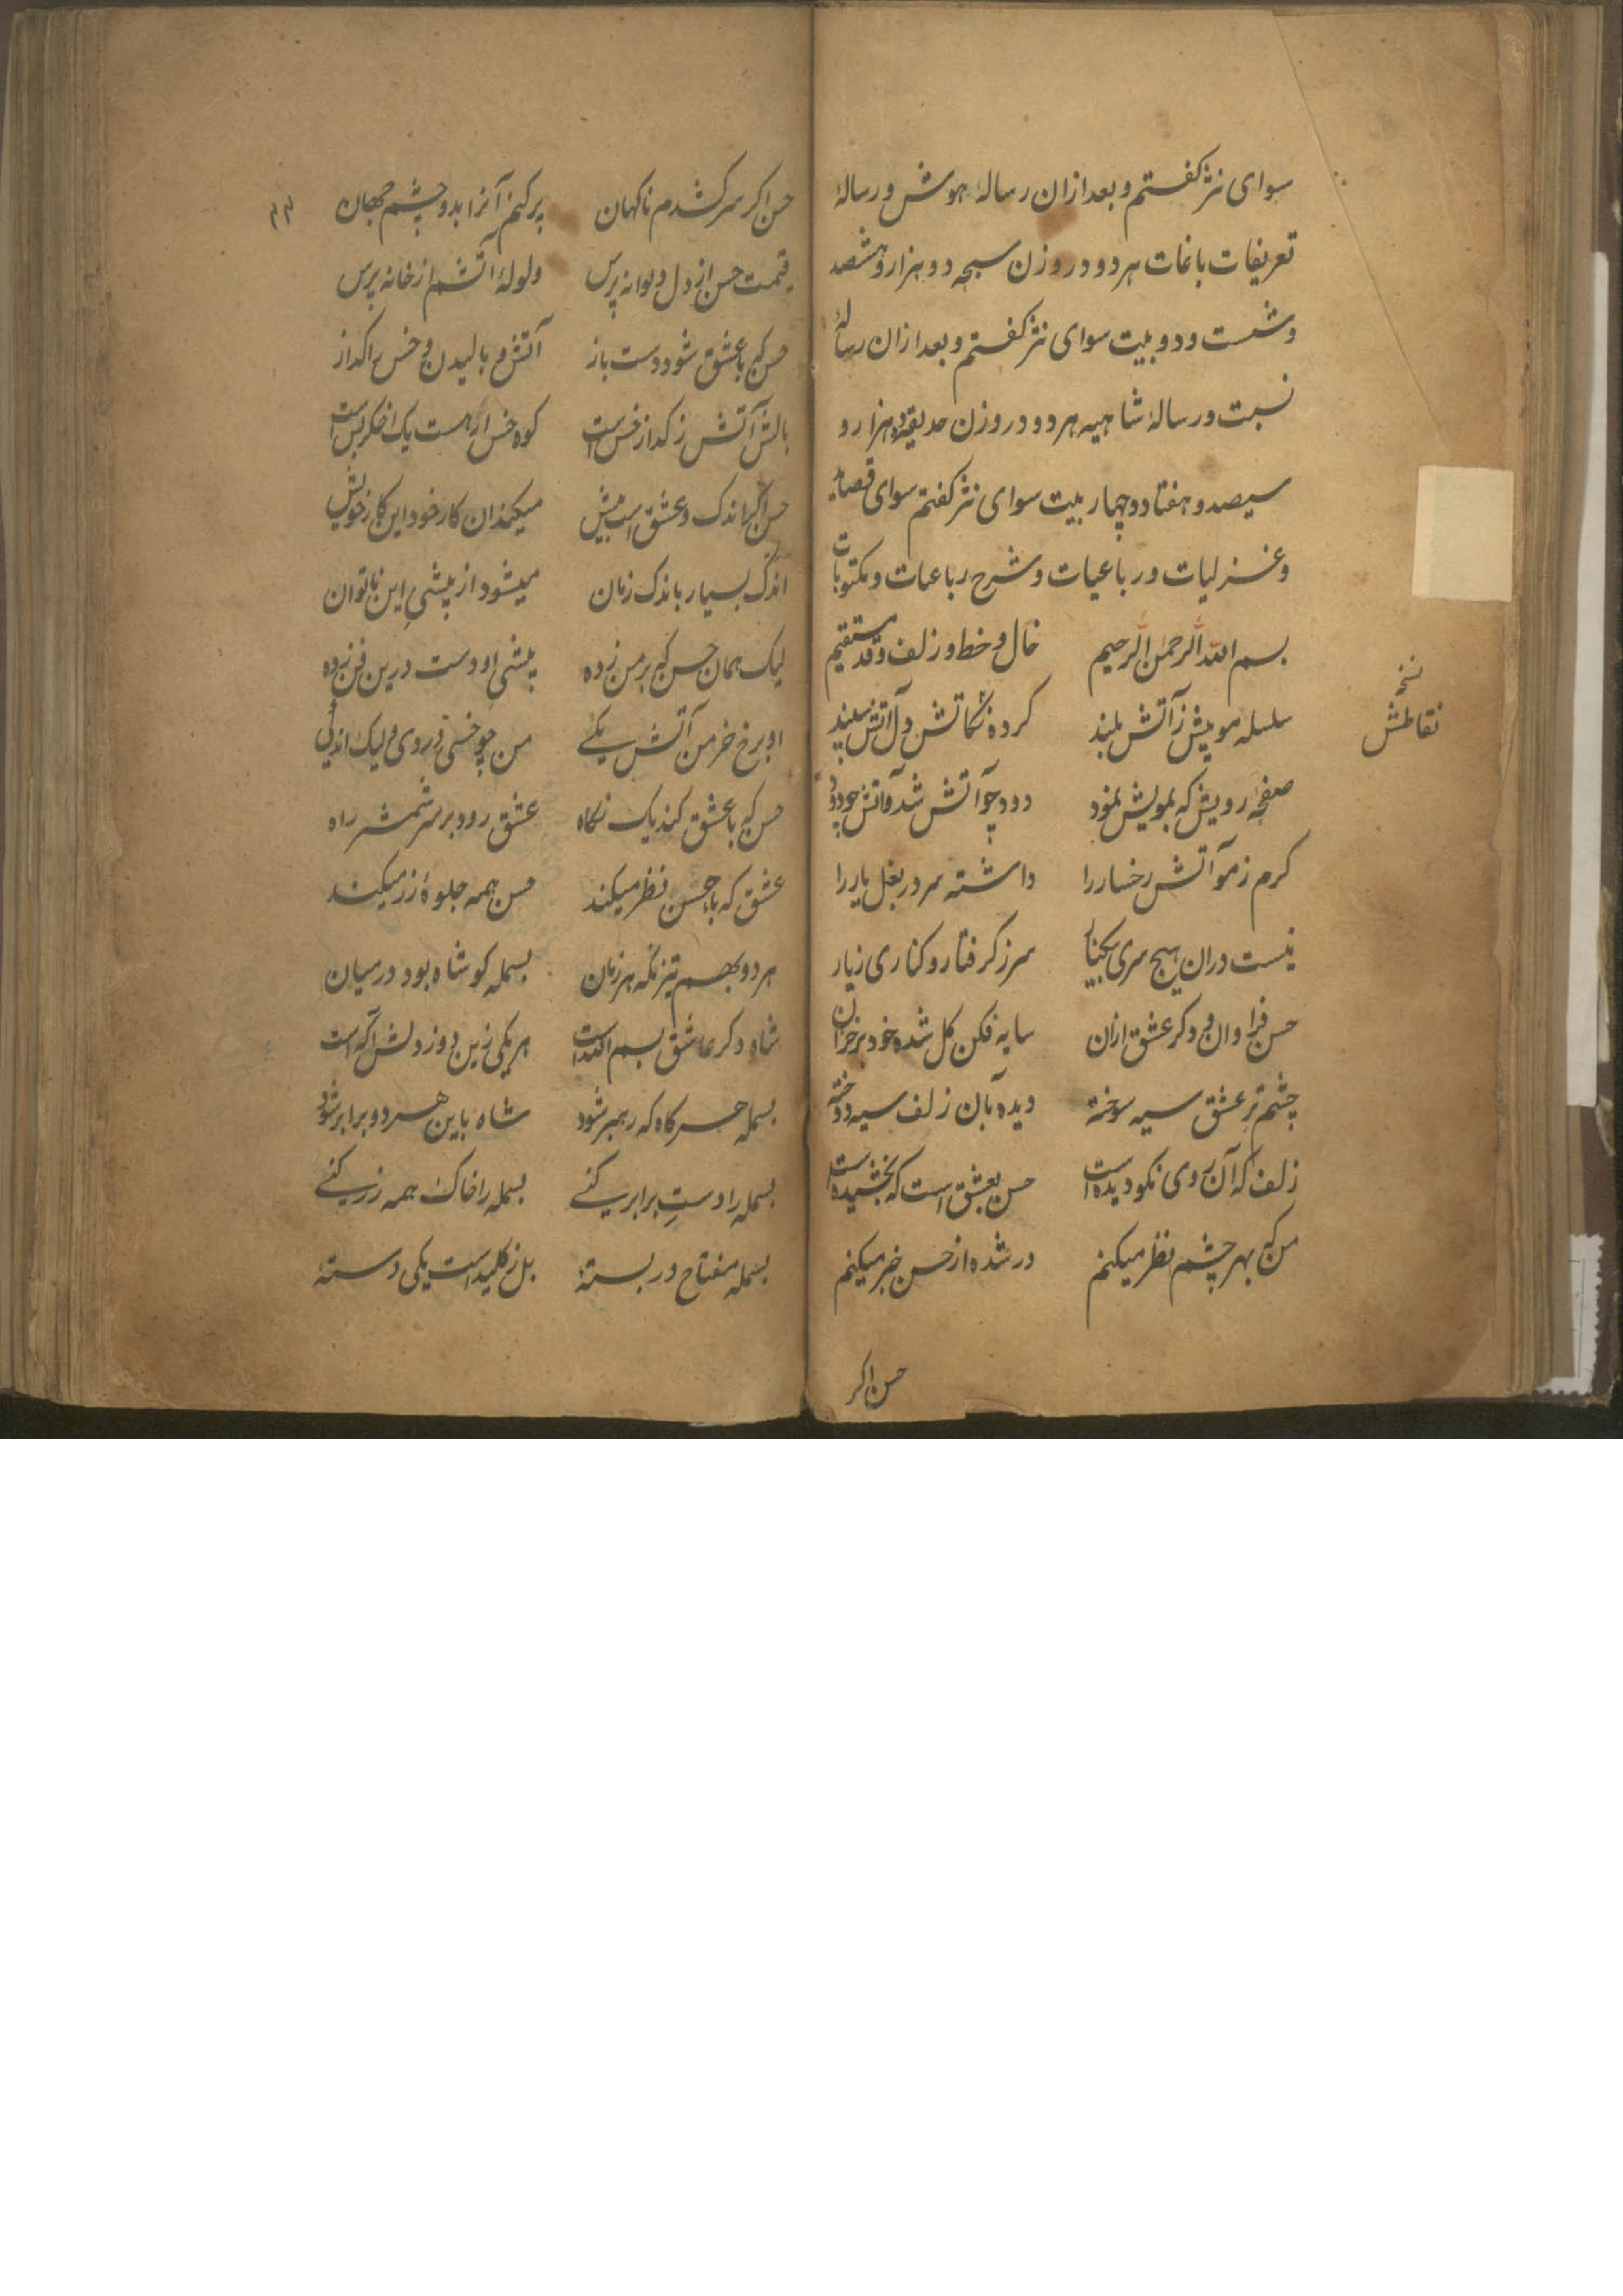 سوای نثر کفتم و بعد ازان رسالهٔ هوش و رسالهٔ
تعریفات باغات هر دو در وزن سبحه دو هزار و هشصد
و شست و دو بیت سوای نثر کفتم و بعد ازان رسالهٔ
نسبت و رسالهٔ شاهیه هر دو در وزن حدیقه دو هزار و
سیصد و هفتاد و چهار بیت سوای نثر کفتم سوای قصاید
و غزلیات و رباعیات و شرح رباعیات و مکتوبات
بسم الله الرحمن الرحیم خال و خط و زلف و قد مستقیم
سلسله مویش ز آتش بلند کرده نکاتش دل آتش سپند
نسخه
نقاطش
صفحهٔ رویش که بمویش نمود دود چو آتش شد و آتش چو دود
کرم ز مو آتش رخسار را داشته سر در بغل یار را
نیست دران هیچ سری بر کنار سر ز کرفتار و کناری ز یار
حسن فراوان و دکر عشق ازان سایه فکن کل شده خود بر خزان
چشم تر عشق سیه سوخته دیده بآن زلف سیه دوخته
زلف که آن روی نکو دیده است حسن بعشق است که بخشیده است
من که بهر چشم نظر میکنم در شده از حسن خبر میکنم
حسن اکر
۲۳
حسن اکر سر کشدم ناکهان پر کنم آنرا بدو چشم جهان
قیمت حسن از دل دیوانه پرس ولولهٔ آتشم از خانه پرس
حسن که با عشق شود دست باز آتش و بالیدن و خس را کداز
بالش آتش ز کداز خس است کوه خس ار هست یک اخکر بس است
حسن اکر اندک و عشق است بیش میکند آن کار خود این کار خویش
اندک بسیار باندک زمان میشود از پیشی این ناتوان
لیک همان حسن که بر من زده پیشی او دست درین فن زده
او برخ خرمن آتش یکی من چو خسی در روی ولیک اندکی
حسن که با عشق کند یک نکاه عشق رود بر سر شمشر راه
عشق که با حسن نظر میکند حسن همه جلوهٔ زر میکند
هر دو بهم تیز نکه هر زمان بسمله کو شاه بود در میان
شاه دکر عاشق بسم الله است هر یکی زین دو ز دلش آکه است
بسمله هر کاه که رهبر شود شاه باین هر دو برابر شود
بسمله را دست برابر کنی بسمله را خاک همه زر کنی
بسمله مفتاح در بستهٔ بل ز کلید است یکی دستهٔ